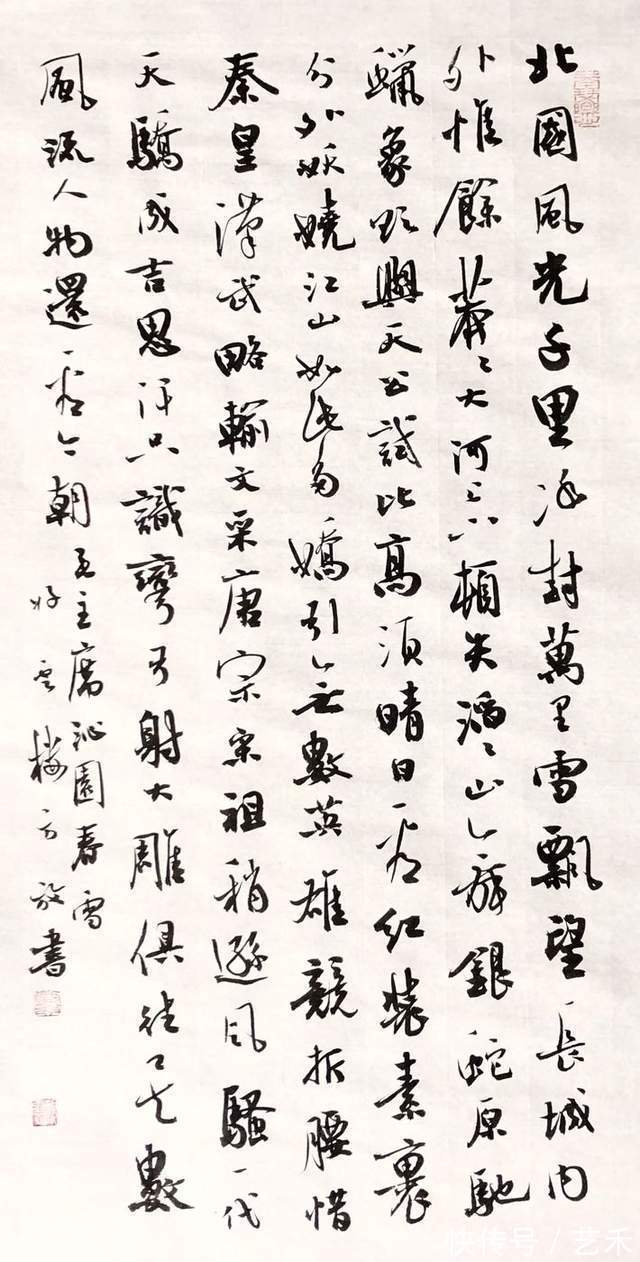 北國風光千里冰封萬里雪飄望長城内
外惟餘莽々大河上下頓失滔々山舞銀蛇原馳
蠟象欲與天公試比高須晴日看紅裝素裹
分外妖嬈江山如此多嬌引無數英雄競折腰惜
秦皇漢武略輸文采唐宗宋祖稍遜風騷一代
天驕成吉思汗只識彎弓射大雕俱往矣數
風流人物還看今朝
毛主席沁園春雪
好雲樓方放書
快传号／艺禾